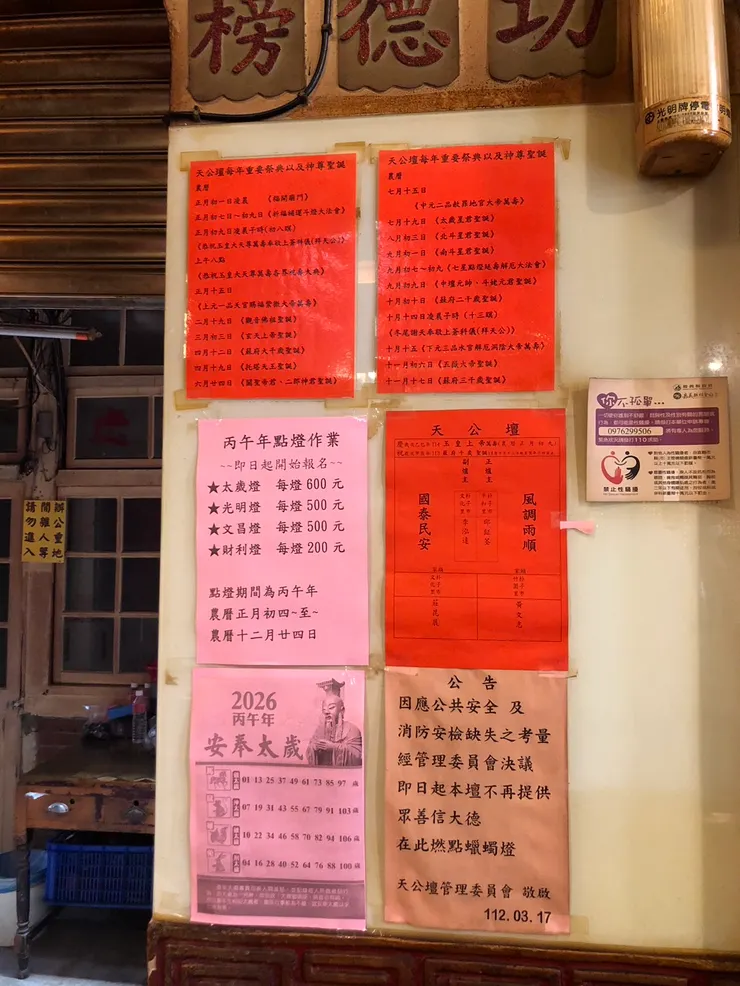 功德榜
光明牌停電
天公壇每年重要祭典以及神尊聖誕
農曆
正月初一日凌晨 《臨開廟門》
正月初七日～初九日《祈福補運斗燈大法會》
正月初九日凌晨子時(初八暝)
《恭祝玉皇大天尊萬壽敬上蒼科儀(拜天公)》
上午八點
《恭祝玉皇大天尊萬壽各界祝壽大典》
正月十五日
《上元一品天官賜福紫微大帝萬壽》
二月十九日 《觀音佛祖聖誕》
三月初三日 《玄天上帝聖誕》
四月十二日 《蘇府大千歲聖誕》
四月十九日 《托塔天王聖誕》
六月廿四日 《關聖帝君、二郎神君聖誕》
天公壇每年重要祭典以及神尊聖誕
農曆
七月十五日
《中元二品赦罪地官大帝萬壽》
七月十九日 《太歲星君聖誕》
八月初三日 《北斗星君聖誕》
九月初一日 《南斗星君聖誕》
九月初七～初九《七星點燈延壽解厄大法會》
九月初九日 《中壇元帥、斗姥元君聖誕》
十月初十日 《蘇府二千歲聖誕》
十月十四日凌晨子時(十三暝)
《冬尾謝天奉敬上蒼科儀(拜天公)》
十月十五《下元三品水官解厄洞陰大帝萬壽》
十一月初六日《五嶽大帝聖誕》
十一月十七日《蘇府三千歲聖誕》
丙午年點燈作業
~~即日起開始報名~~
★太歲燈 每燈600元
★光明燈 每燈500元
★文昌燈 每燈500元
★財利燈 每燈200元
點燈期間為丙午年
農曆正月初四~至~
農曆十二月廿四日
天公壇
正爐主
副爐主
風調雨順
國泰民安
你不孤單...
0976299506
禁止性騷擾
辦公重地
閒雜人等
請勿進入
2026
丙午年
安奉太歲
01 13 25 37 49 61 73 85 97 歲
07 19 31 43 55 67 79 91 103 歲
10 22 34 46 58 70 82 94 106 歲
04 16 28 40 52 64 76 88 100 歲
公告
因應公共安全 及
消防安檢缺失之考量
經管理委員會決議
即日起本壇不再提供
眾善信大德
在此燃點蠟蠋燈
天公壇管理委員會 敬啟
112.03.17